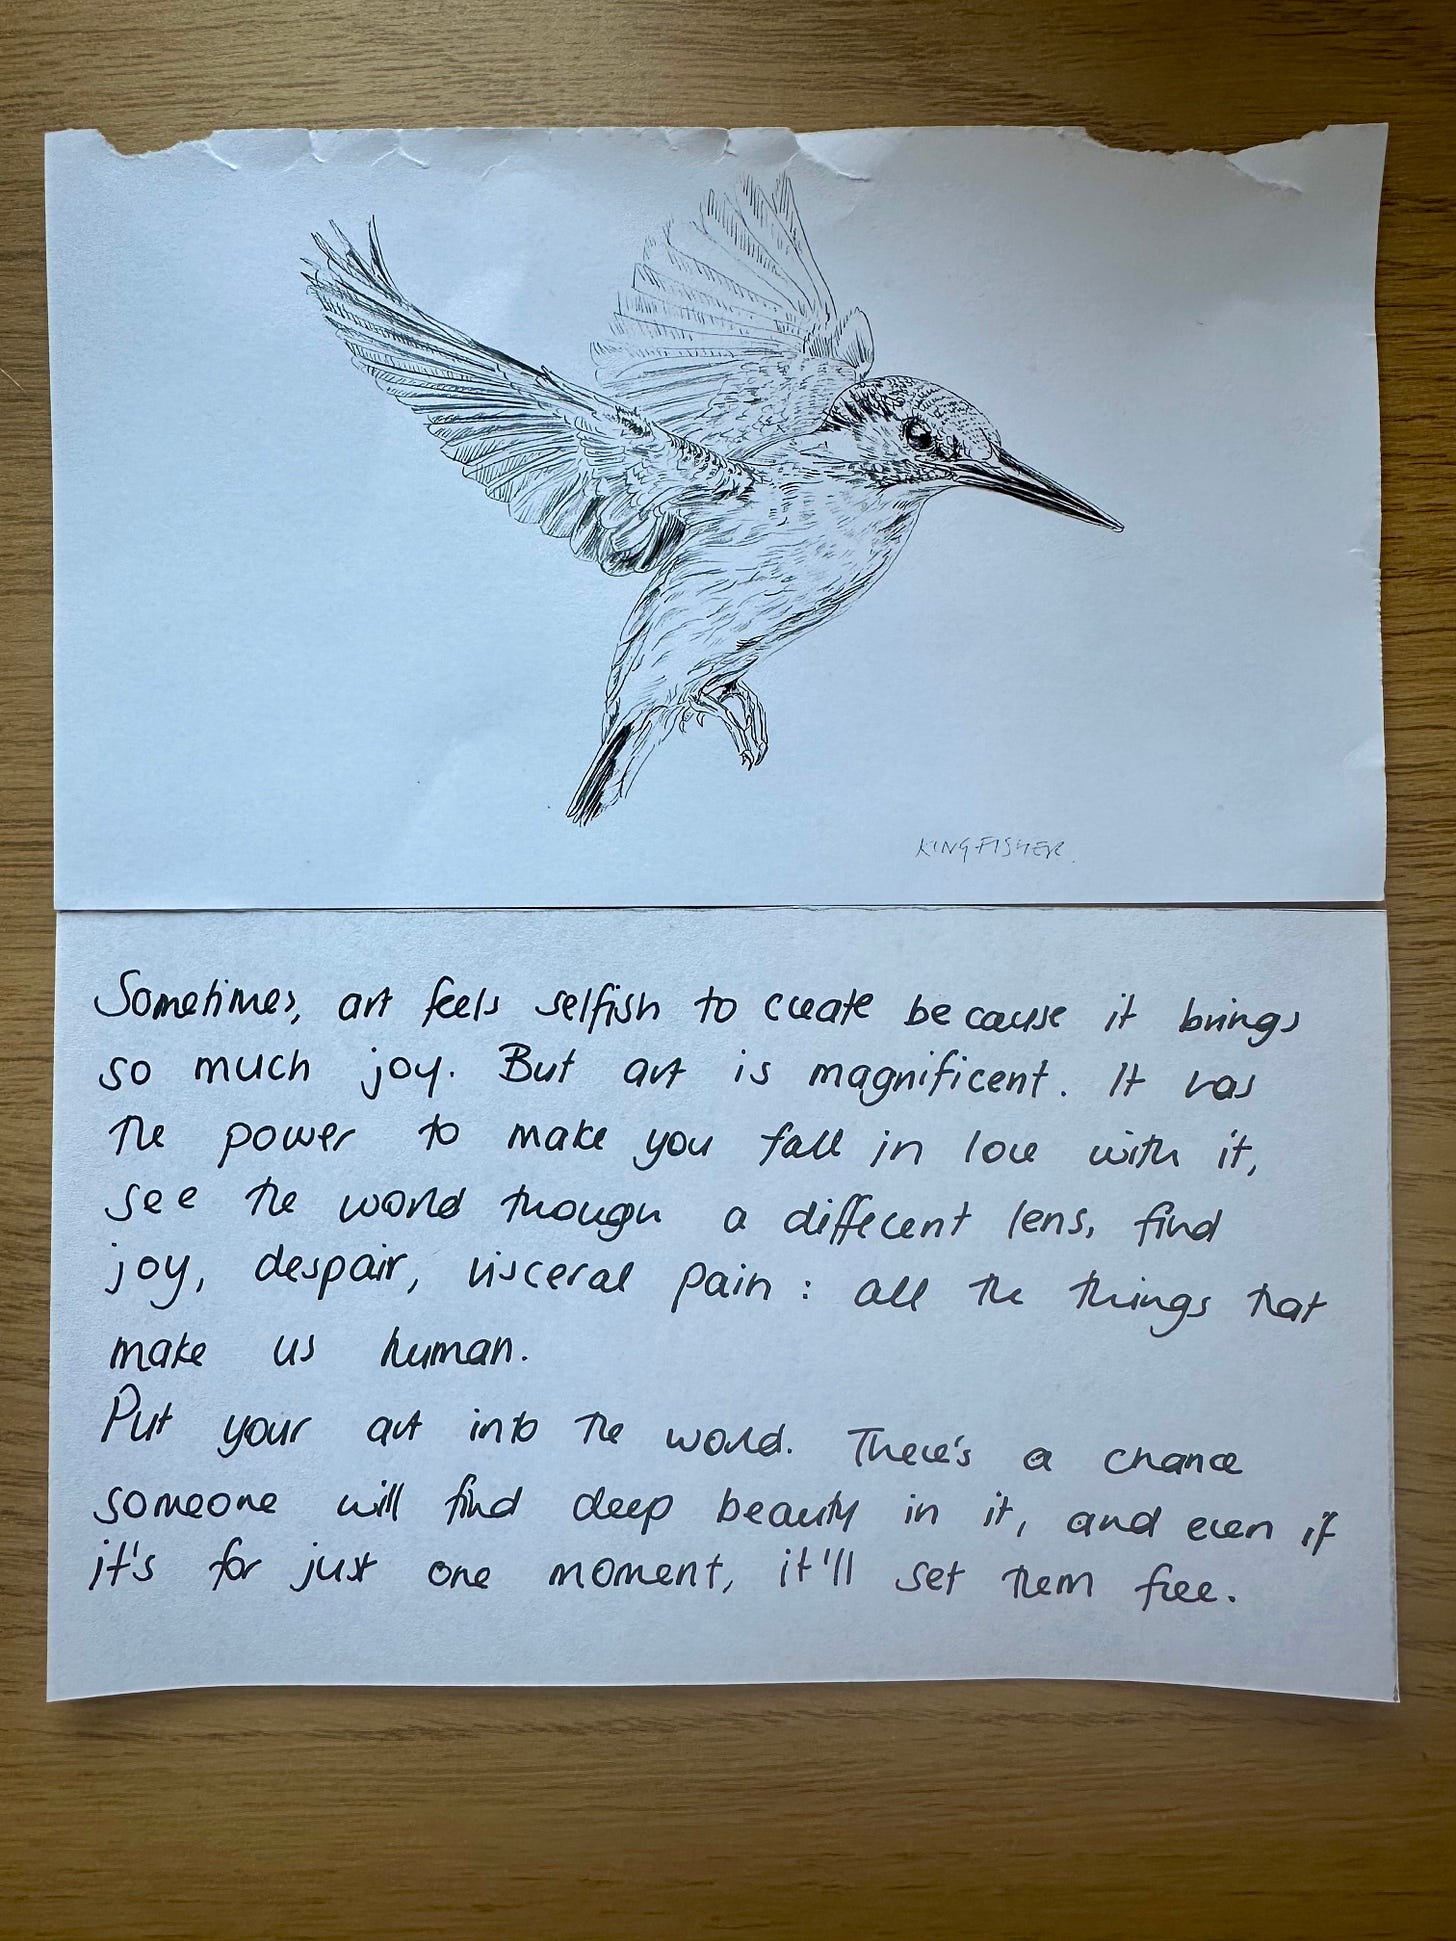 KINGFISHER.
Sometimes, art feels selfish to create because it brings
so much joy. But art is magnificent. It has
the power to make you fall in love with it,
see the world through a different lens, find
joy, despair, visceral pain : all the things that
make us human.
Put your art into the world. There's a chance
someone will find deep beauty in it, and even if
it's for just one moment, it'll set them free.